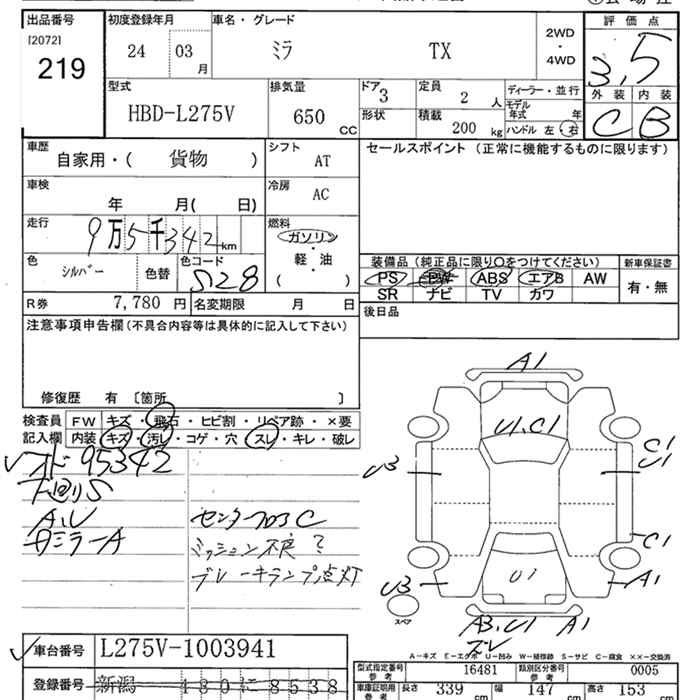 出品番号
[2072]
219
初度登録年月
24 03
月
車名・グレード
ミラ TX
2WD
・
4WD
評価点
3.5
外装 内装
C B
型式
HBD-L275V
排気量
650
CC
ドア
3
形状
定員
2 人
積載
200 kg
ディーラー・並行
モデル
年式 年
ハンドル 左・右
車歴
自家用・( 貨物 )
シフト
AT
車検
年 月( 日)
冷房
AC
走行
9万5千342km
燃料
ガソリン
・
軽・油
( )
色
シルバー
色替
色コード
S28
R券
7,780 円
名変期限 月 日
セールスポイント (正常に機能するものに限ります)
装備品(純正品に限り○をつけてください)
新車保証書
PS PW ABS エアB AW
有・無
SR ナビ TV カワ
後日品
注意事項申告欄(不具合内容等は具体的に記入して下さい)
修復歴 有 〔箇所 〕
検査員
記入欄
FW キズ・飛石・ヒビ割・リペア跡・×要
内装 キズ・汚レ・コゲ・穴・スレ・キレ・破レ
95342
下回りS
A,U
センターフロアC
ミラーA
ミッション不良?
ブレーキランプ点灯
A1
U1,C1
U3
C1
U1
C1
U3
U1
A1
スペア
A3,U1 A1
A-キズ E-エクボ U-凹み W-補修跡 S-サビ C-腐食 ××-交換済
車台番号
L275V-1003941
登録番号
新潟 480 に 8538
型式指定番号
参考
16481
類別区分番号
参考
0005
車庫証明用
参考
長さ 339 cm
幅 147 cm
高さ 153 cm